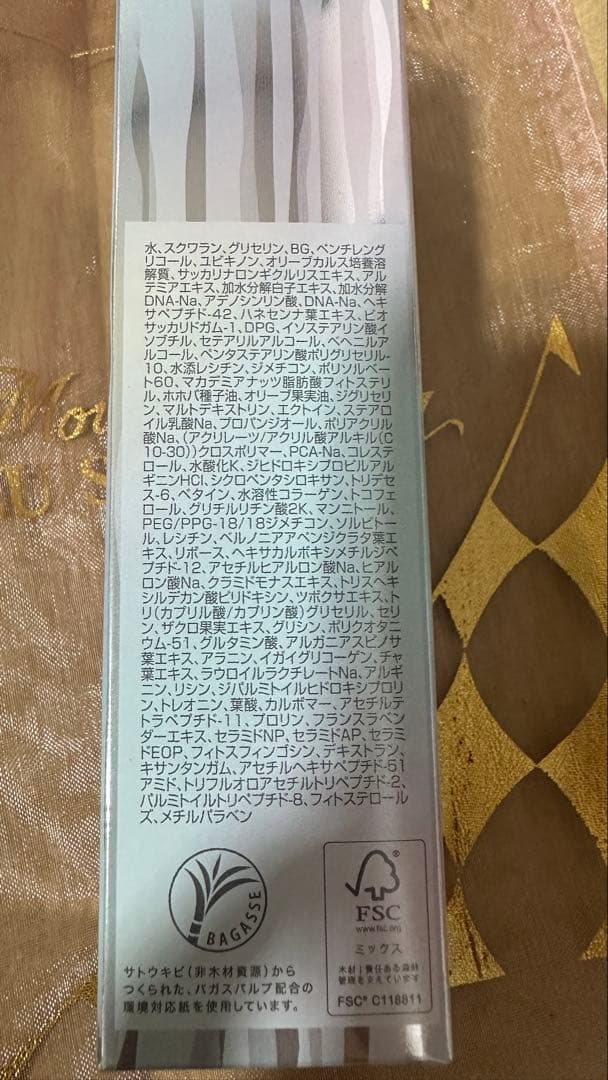 水、スクワラン、グリセリン、BG、ペンチレング
リコール、ユビキノン、オリーブカルス培養溶
解質、サッカリナロンギクルリスエキス、アル
テミアエキス、加水分解白子エキス、加水分解
DNA-Na、アデノシンリン酸、DNA-Na、ヘキ
サペプチド-42、ハネセンナ葉エキス、ビオ
サッカリドガム-1、DPG、イソステアリン酸イ
ソブチル、セテアリルアルコール、ベヘニルア
ルコール、ペンタステアリン酸ポリグリセリル-
10、水添レシチン、ジメチコン、ポリソルベー
ト60、マカデミアナッツ脂肪酸フィトステリ
ル、ホホバ種子油、オリーブ果実油、ジグリセリ
ン、マルトデキストリン、エクトイン、ステアロ
イル乳酸Na、プロパンジオール、ポリアクリル
酸Na、(アクリレーツ/アクリル酸アルキル(C
10-30))クロスポリマー、PCA-Na、コレステ
ロール、水酸化K、ジヒドロキシプロピルアル
ギニンHCl、シクロペンタシロキサン、トリデセ
ス-6、ベタイン、水溶性コラーゲン、トコフェ
ロール、グリチルリチン酸2K、マンニトール、
PEG/PPG-18/18ジメチコン、ソルビトー
ル、レシチン、ベルノニアアペンジクラタ葉エ
キス、リボース、ヘキサカルボキシメチルジペ
プチド-12、アセチルヒアルロン酸Na、ヒアル
ロン酸Na、クラミドモナスエキス、トリスヘキ
シルデカン酸ピリドキシン、ツボクサエキス、ト
リ(カプリル酸/カプリン酸)グリセリル、セリ
ン、ザクロ果実エキス、グリシン、ポリクオタニ
ウム-51、グルタミン酸、アルガニアスピノサ
葉エキス、アラニン、イガイグリコーゲン、チャ
葉エキス、ラウロイルラクチレートNa、アルギ
ニン、リシン、ジパルミトイルヒドロキシプロリ
ン、トレオニン、葉酸、カルボマー、アセチルテ
トラペプチド-11、プロリン、フランスラベン
ダーエキス、セラミドNP、セラミドAP、セラミ
ドEOP、フィトスフィンゴシン、デキストラン、
キサンタンガム、アセチルヘキサペプチド-51
アミド、トリフルオロアセチルトリペプチド-2、
パルミトイルトリペプチド-8、フィトステロール
ズ、メチルパラベン
BAGASSE
サトウキビ(非木材資源)から
つくられた、バガスパルプ配合の
環境対応紙を使用しています。
FSC
www.fsc.org
ミックス
木材|責任ある森林
管理を支えています
FSC® C118811